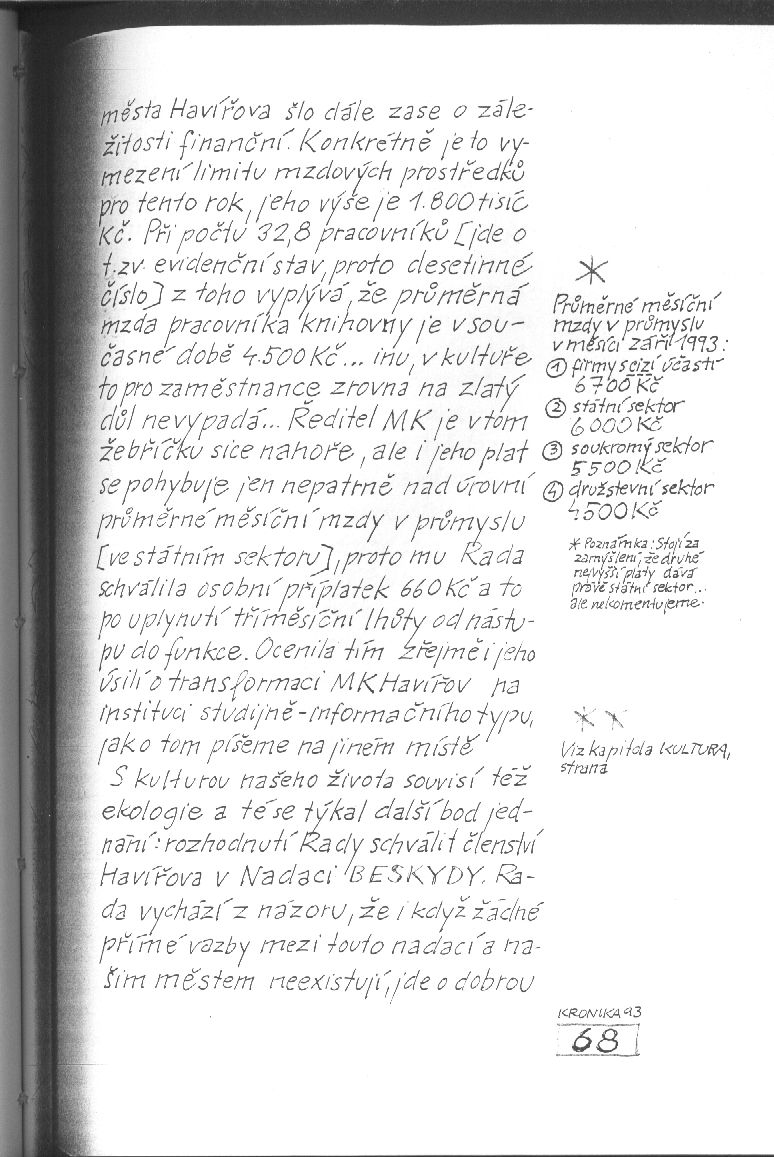 města Havířova šlo dále zase o zále-
žitosti finanční. Konkrétně je to vy-
mezení limitu mzdových prostředků
pro tento rok, jeho výše je 1.800 tisíc
Kč. Při počtu 32,8 pracovníků [jde o
t.zv. evidenční stav, proto desetinné
číslo] z toho vyplývá, že průměrná
mzda pracovníka knihovny je v sou-
časné době 4.500 Kč... inu, v kultuře
to pro zaměstnance zrovna na zlatý
důl nevypadá... Ředitel MK je v tom
žebříčku sice nahoře, ale i jeho plat
se pohybuje jen nepatrně nad úrovní
průměrné měsíční mzdy v průmyslu
[ve státním sektoru], proto mu Rada
schválila osobní příplatek 660 Kč a to
po uplynutí tříměsíční lhůty od nástu-
pu do funkce. Ocenila tím zřejmě i jeho
úsilí o transformaci MK Havířov na
instituci studijně-informačního typu,
jak o tom píšeme na jiném místě
S kulturou našeho života souvisí též
ekologie a té se týkal další bod jed-
nání: rozhodnutí Rady schválit členství
Havířova v Nadaci BESKYDY. Ra-
da vychází z názoru, že i když žádné
přímé vazby mezi touto nadací a na-
ším městem neexistují, jde o dobrou
*
Průměrné měsíční
mzdy v průmyslu
v měsíci září 1993:
① firmy s cizí účastí
6700 Kč
② státní sektor
6000 Kč
③ soukromý sektor
5500 Kč
④ družstevní sektor
4500 Kč
* Poznámka: Stojí za
zamyšlení, že druhé
nejvyšší platy dává
právě státní sektor...
ale nekomentujeme.
**
Viz kapitola KULTURA,
strana
KRONIKA 93
68